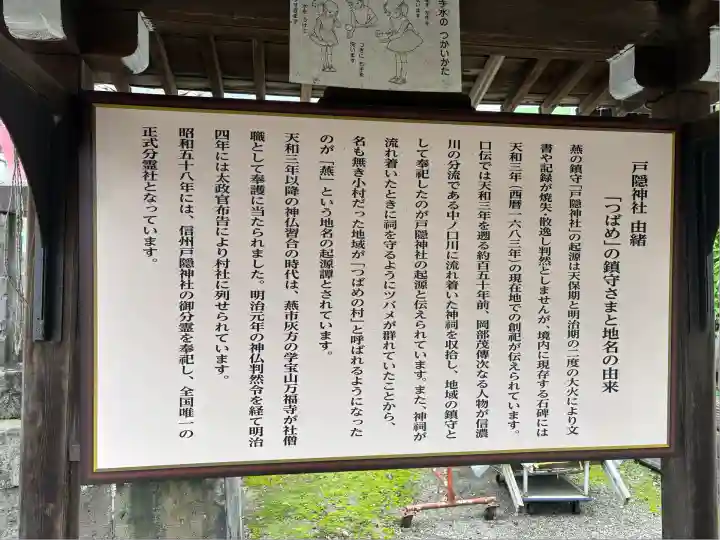 手水の つかいかた
戸隠神社 由緒
「つばめ」の鎮守さまと地名の由来
燕の鎮守「戸隠神社」の起源は天保期と明治期の二度の大火により文
書や記録が焼失・散逸し判然としませんが、境内に現存する石碑には
天和三年（西暦一六八三年）の現在地での創祀が伝えられています。
口伝では天和三年を遡る約百五十年前、岡部茂傳次なる人物が信濃
川の分流である中ノ口川に流れ着いた神祠を収拾し、地域の鎮守と
して奉祀したのが戸隠神社の起源と伝えられています。また、神祠が
流れ着いたときに祠を守るようにツバメが群れていたことから、
名も無き小村だった地域が「つばめの村」と呼ばれるようになった
のが「燕」という地名の起源譚とされています。
天和三年以降の神仏習合の時代は、燕市灰方の学宝山万福寺が社僧
職として奉護に当たられました。明治元年の神仏判然令を経て明治
四年には太政官布告により村社に列せられています。
昭和五十八年には、信州戸隠神社の御分霊を奉祀し、全国唯一の
正式分霊社となっています。